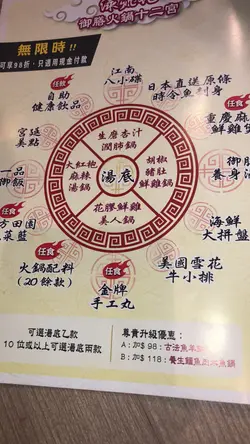 御膳火鍋十二宮
無限時!!
可享98折,只適用現金付款
江南
八小碟
日本直送原條
時令魚刺身
任飲
自助
健康飲品
重慶麻
鮮雞鍋
宮廷
美點
生磨杏汁
潤肺鍋
大紅袍
麻辣
湯鍋
湯底
胡椒
豬肚
鮮雞鍋
花膠鮮雞
美人鍋
御膳
養身湯
任食
一品
御飯
任食
方田園
菜籃
海鮮
大拼盤
任食
火鍋配料
(20餘款)
任食
金牌
手工丸
美國雪花
牛小排
可選湯底乙款
10位或以上可選湯底兩款
尊貴升級優惠:
A:加$98:古法魚羊
B:加$118:養生